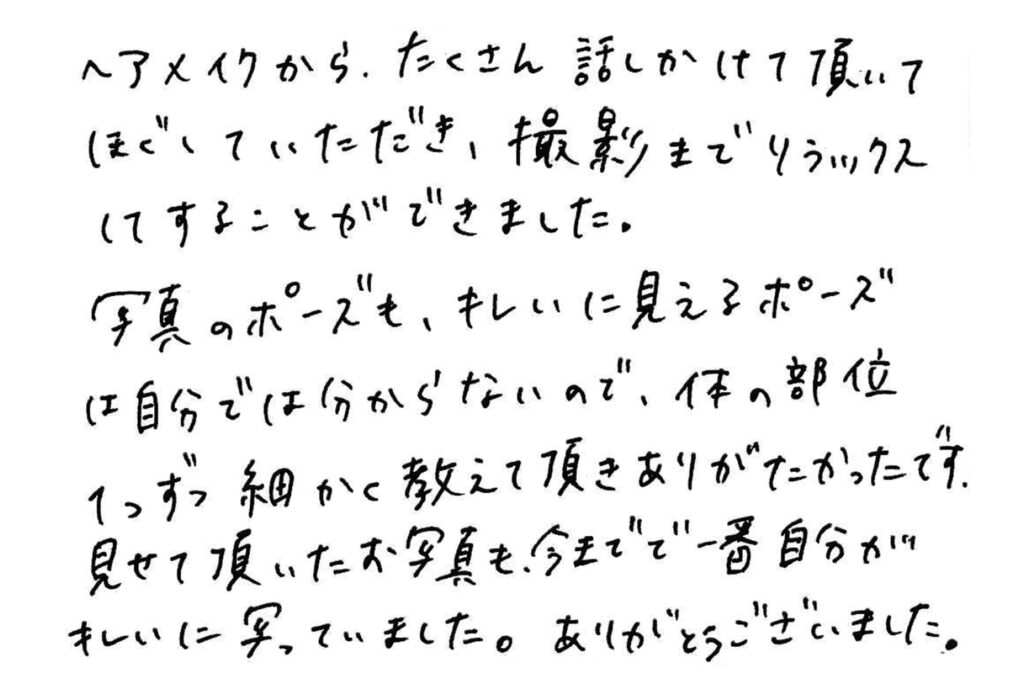 ヘアメイクから、たくさん話しかけて頂いて
ほぐしていただき、撮影までリラックス
してすることができました。
写真のポーズも、キレいに見えるポーズ
は自分では分からないので、体の部位
1つずつ細かく教えて頂きありがたかったです。
見せて頂いたお写真も、今までで一番自分が
キレいに写っていました。ありがとうございました。